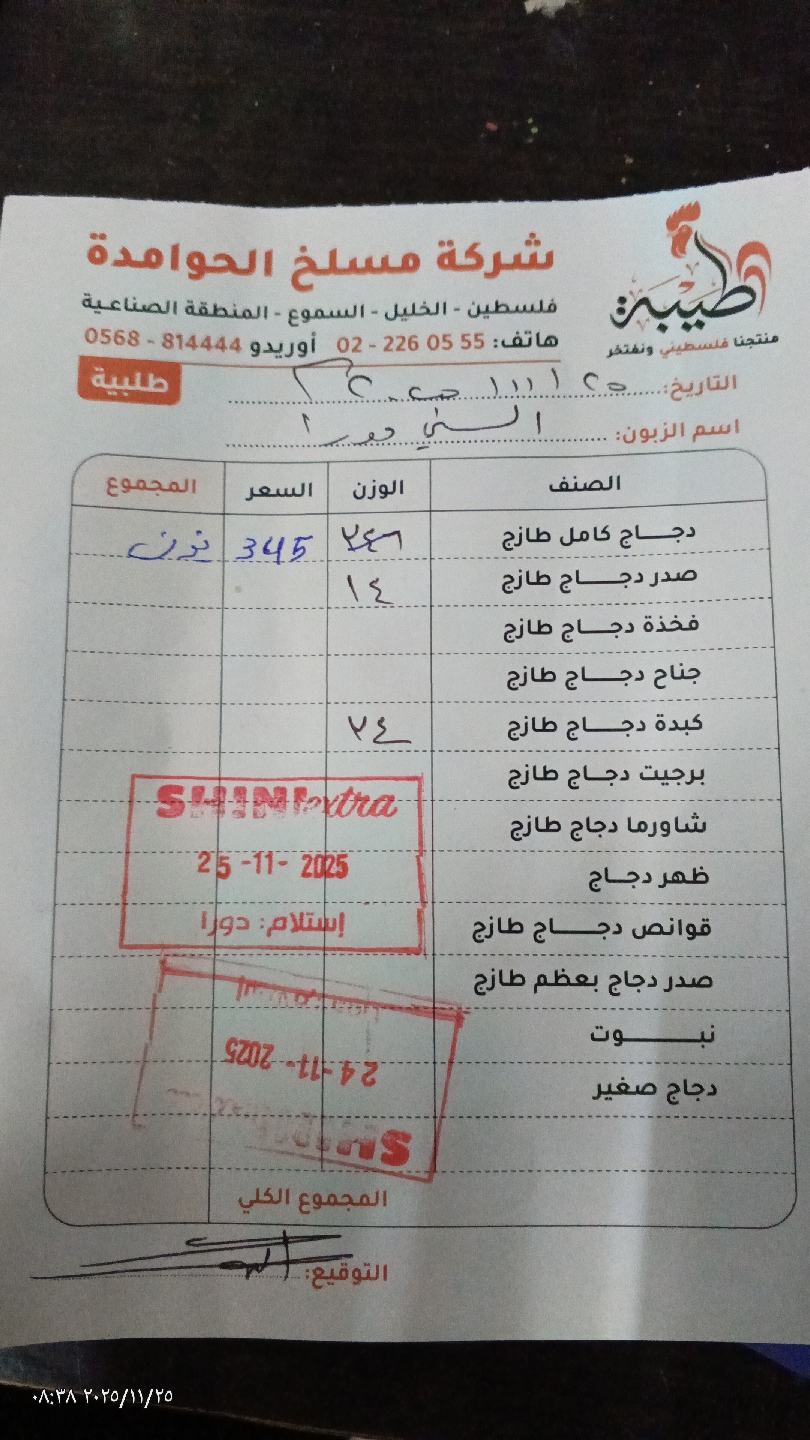 شركة مسلخ الحوامدة
فلسطين - الخليل - السموع - المنطقة الصناعية
هاتف: 02 - 226 05 55 أوريدو 0568 - 814444
طيبة
منتجنا فلسطيني ونفتخر
طلبية
التاريخ:
اسم الزبون: دورا
الصنف الوزن السعر المجموع
دجاج كامل طازج 345
صدر دجاج طازج ١٤
فخذة دجاج طازج
جناح دجاج طازج
كبدة دجاج طازج ٢٤
برجيت دجاج طازج
شاورما دجاج طازج
ظهر دجاج
قوانص دجاج طازج
صدر دجاج بعظم طازج
نبوت
دجاج صغير
SHINI extra
25 -11- 2025
إستلام: دورا
24 -11- 2025
المجموع الكلي
التوقيع:
٠٨:٣٨ ٢٠٢٥/١١/٢٥